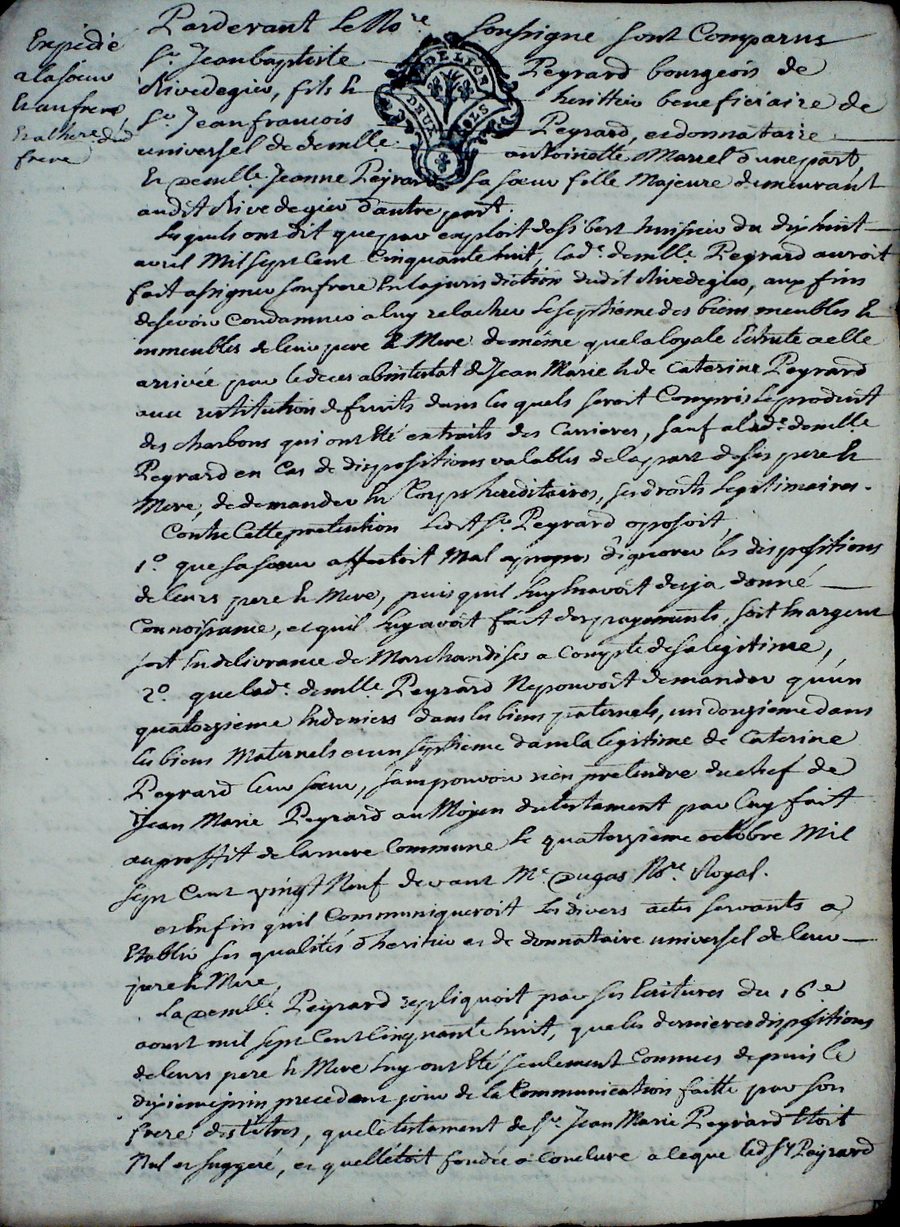 Expedié
a la soeur
et au frere
et a l'here. dud
frere
Pardevant Le No.re soussigne sont Comparus
Sr. Jean baptiste Peyrard bourgeois de
Rivedegier, fils et heritier beneficiaire de
Sr. Jean francois Peyrard, et donnataire
universel de demlle. antoinette Marcel d'une part
Et Demlle. Jeanne Peyrard sa soeur fille Majeure demeurant
audit Rivedegier d'autre part,
GENERALITE DE LION
DEUX SOLS
Lesquels ont dit que par exploit de Gibert huissier du dix huit
avril Mil sept Cent Cinquante huit, lad.e demlle. Peyrard auroit
fait assigner son frere En la jurisdiction dudit Rivedegier, aux fins
de se voir Condamner a luy relacher le septieme des biens meubles Et
immeubles de leur pere & Mere de même que la loyale Echute a elle
arrivée par le deces abintestat de Jean Marie et de Caterine Peyrard
avec restitution de fruits dans les quels seroit Compris le produit
des charbons qui ont Eté extraits des Carrieres, sauf a lad.e demlle
Peyrard en Cas de dispositions valables de la part de ses pere Et
Mere, de demander En Corps hereditaires, ses droits legitimaires.
Contre Cette pretention ledit Sr. Peyrard oposoit,
1o. que sa soeur affectoit Mal apropos d'ignorer les dispositions
de leurs pere Et Mere, puis qu'il luy En avoit desja donné
Connoissance, et qu'il luy avoit fait des payements, soit En argent
soit En delivrance de Marchandises a Compte de sa legitime,
2o. que lad.e demlle. Peyrard Ne pouvoit demander qu'un
quatorzieme En deniers dans les biens paternels, un douzieme dans
les biens Maternels et un septieme dans la legitime de Caterine
Peyrard leur soeur, sans pouvoir rien pretendre du chef de
Jean Marie Peyrard au Moyen du testament par luy fait
au proffit de la mere Commune le quatorzieme octobre Mil
sept Cent vingt Neuf devant Me. Dugas No.re Royal.
et Enfin qu'il Communiqueroit les divers actes servants a
Etablir ses qualités d'heritier et de donnataire universel de leur
pere et Mere,
La Demlle. Peyrard repliquoit par ses Ecritures du 16e
aoust mil sept Cent Cinquante huit, que les dernieres dispositions
de leurs pere Et Mere luy ont Eté seulement Connues depuis le
dixieme juin precedent jour de la Communication faitte par son
frere des titres, que le testament de Sr. Jean Marie Peyrard Etoit
Nul et suggeré, et qu'elle étoit fondée a Conclure a Ce que led Sr Peyrard